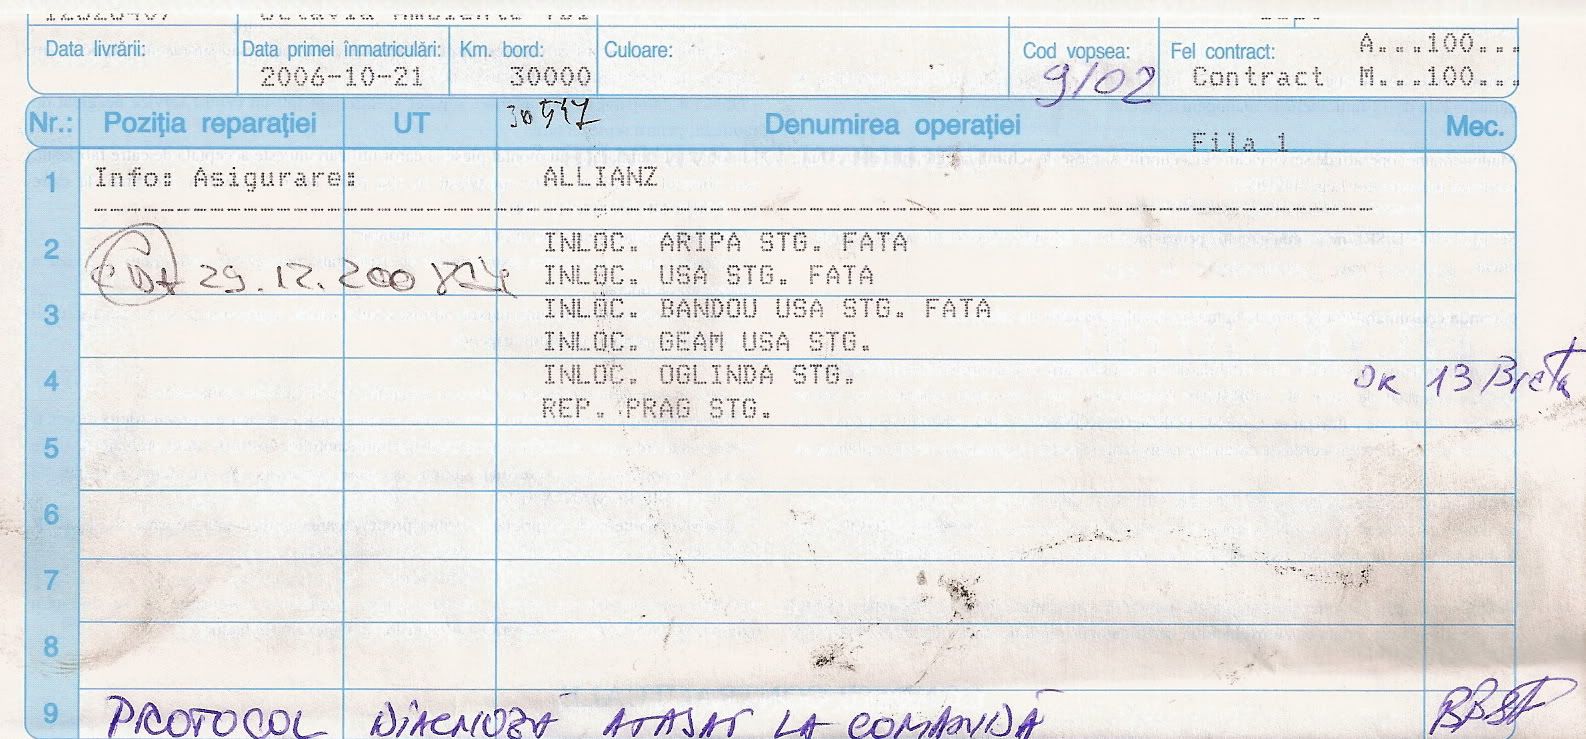 Octavia Ambiente TDI
Data livrării: Data primei înmatriculări: Km. bord: Culoare: Cod vopsea: Fel contract: A...100...
2006-10-21 30000 9102 Contract M...100...
Nr.: Poziția reparației UT Denumirea operației Mec.
Fila 1
1 Info: Asigurare: ALLIANZ
2 INLOC. ARIPA STG. FATA
29.12.200 INLOC. USA STG. FATA
3 INLOC. BANDOU USA STG. FATA
INLOC. GEAM USA STG.
4 INLOC. OGLINDA STG. OK 13
REP. PRAG STG.
5
6
7
8
9 PROTOCOL DIAGNOZĂ ATAȘAT LA COMANDĂ